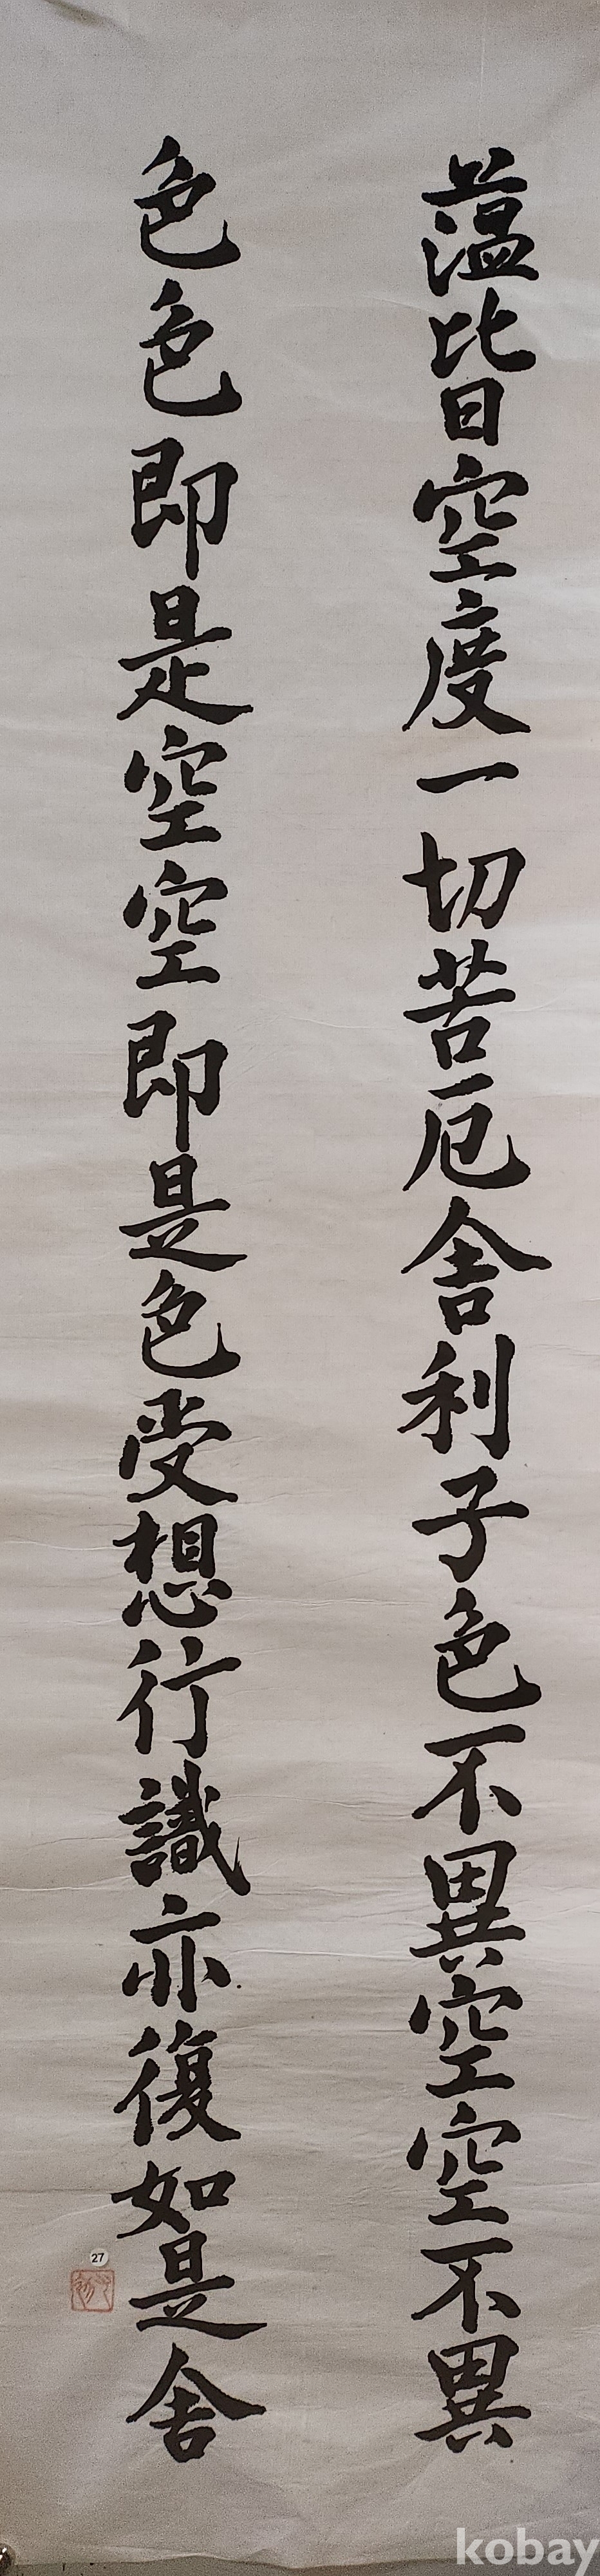 蕰皆空度一切苦厄舍利子色不異空空不異
色色即是空空即是色受想行識亦復如是舍
27
kobay